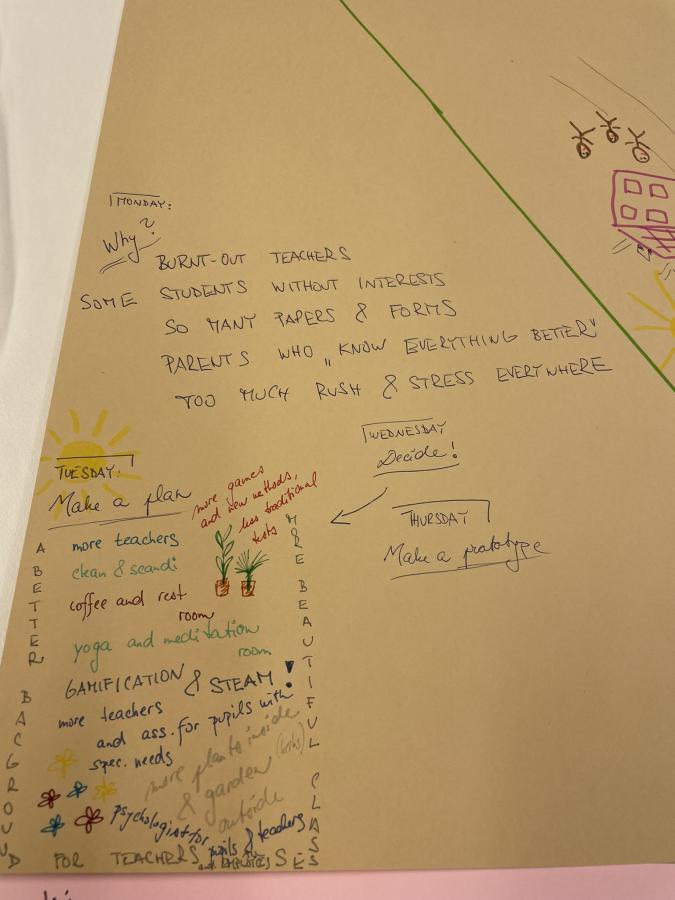 MONDAY:
Why?
BURNT-OUT TEACHERS
SOME STUDENTS WITHOUT INTERESTS
SO MANY PAPERS & FORMS
PARENTS WHO „KNOW EVERYTHING BETTER"
TOO MUCH RUSH & STRESS EVERYWHERE
TUESDAY:
Make a plan
more games
and new methods,
less traditional
tests
more teachers
clean & scandi
coffee and rest
room
yoga and meditation
room
GAMIFICATION & STEAM!
more teachers
and ass. for pupils with
spec. needs
more plants inside
& garden
outside
psychologist for
pupils & teachers
A BETTER BACGROUND FOR TEACHERS
MORE BEAUTIFUL CLASSES
WEDNESDAY
Decide!
THURSDAY
Make a prototype